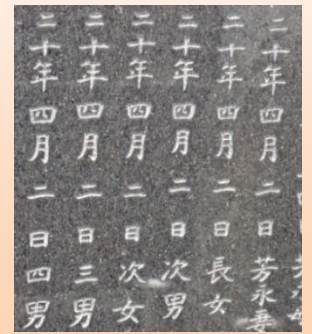 二十年四月二日芳永
二十年四月二日長女
二十年四月二日次男
二十年四月二日次女
二十年四月二日三男
二十年四月二日四男